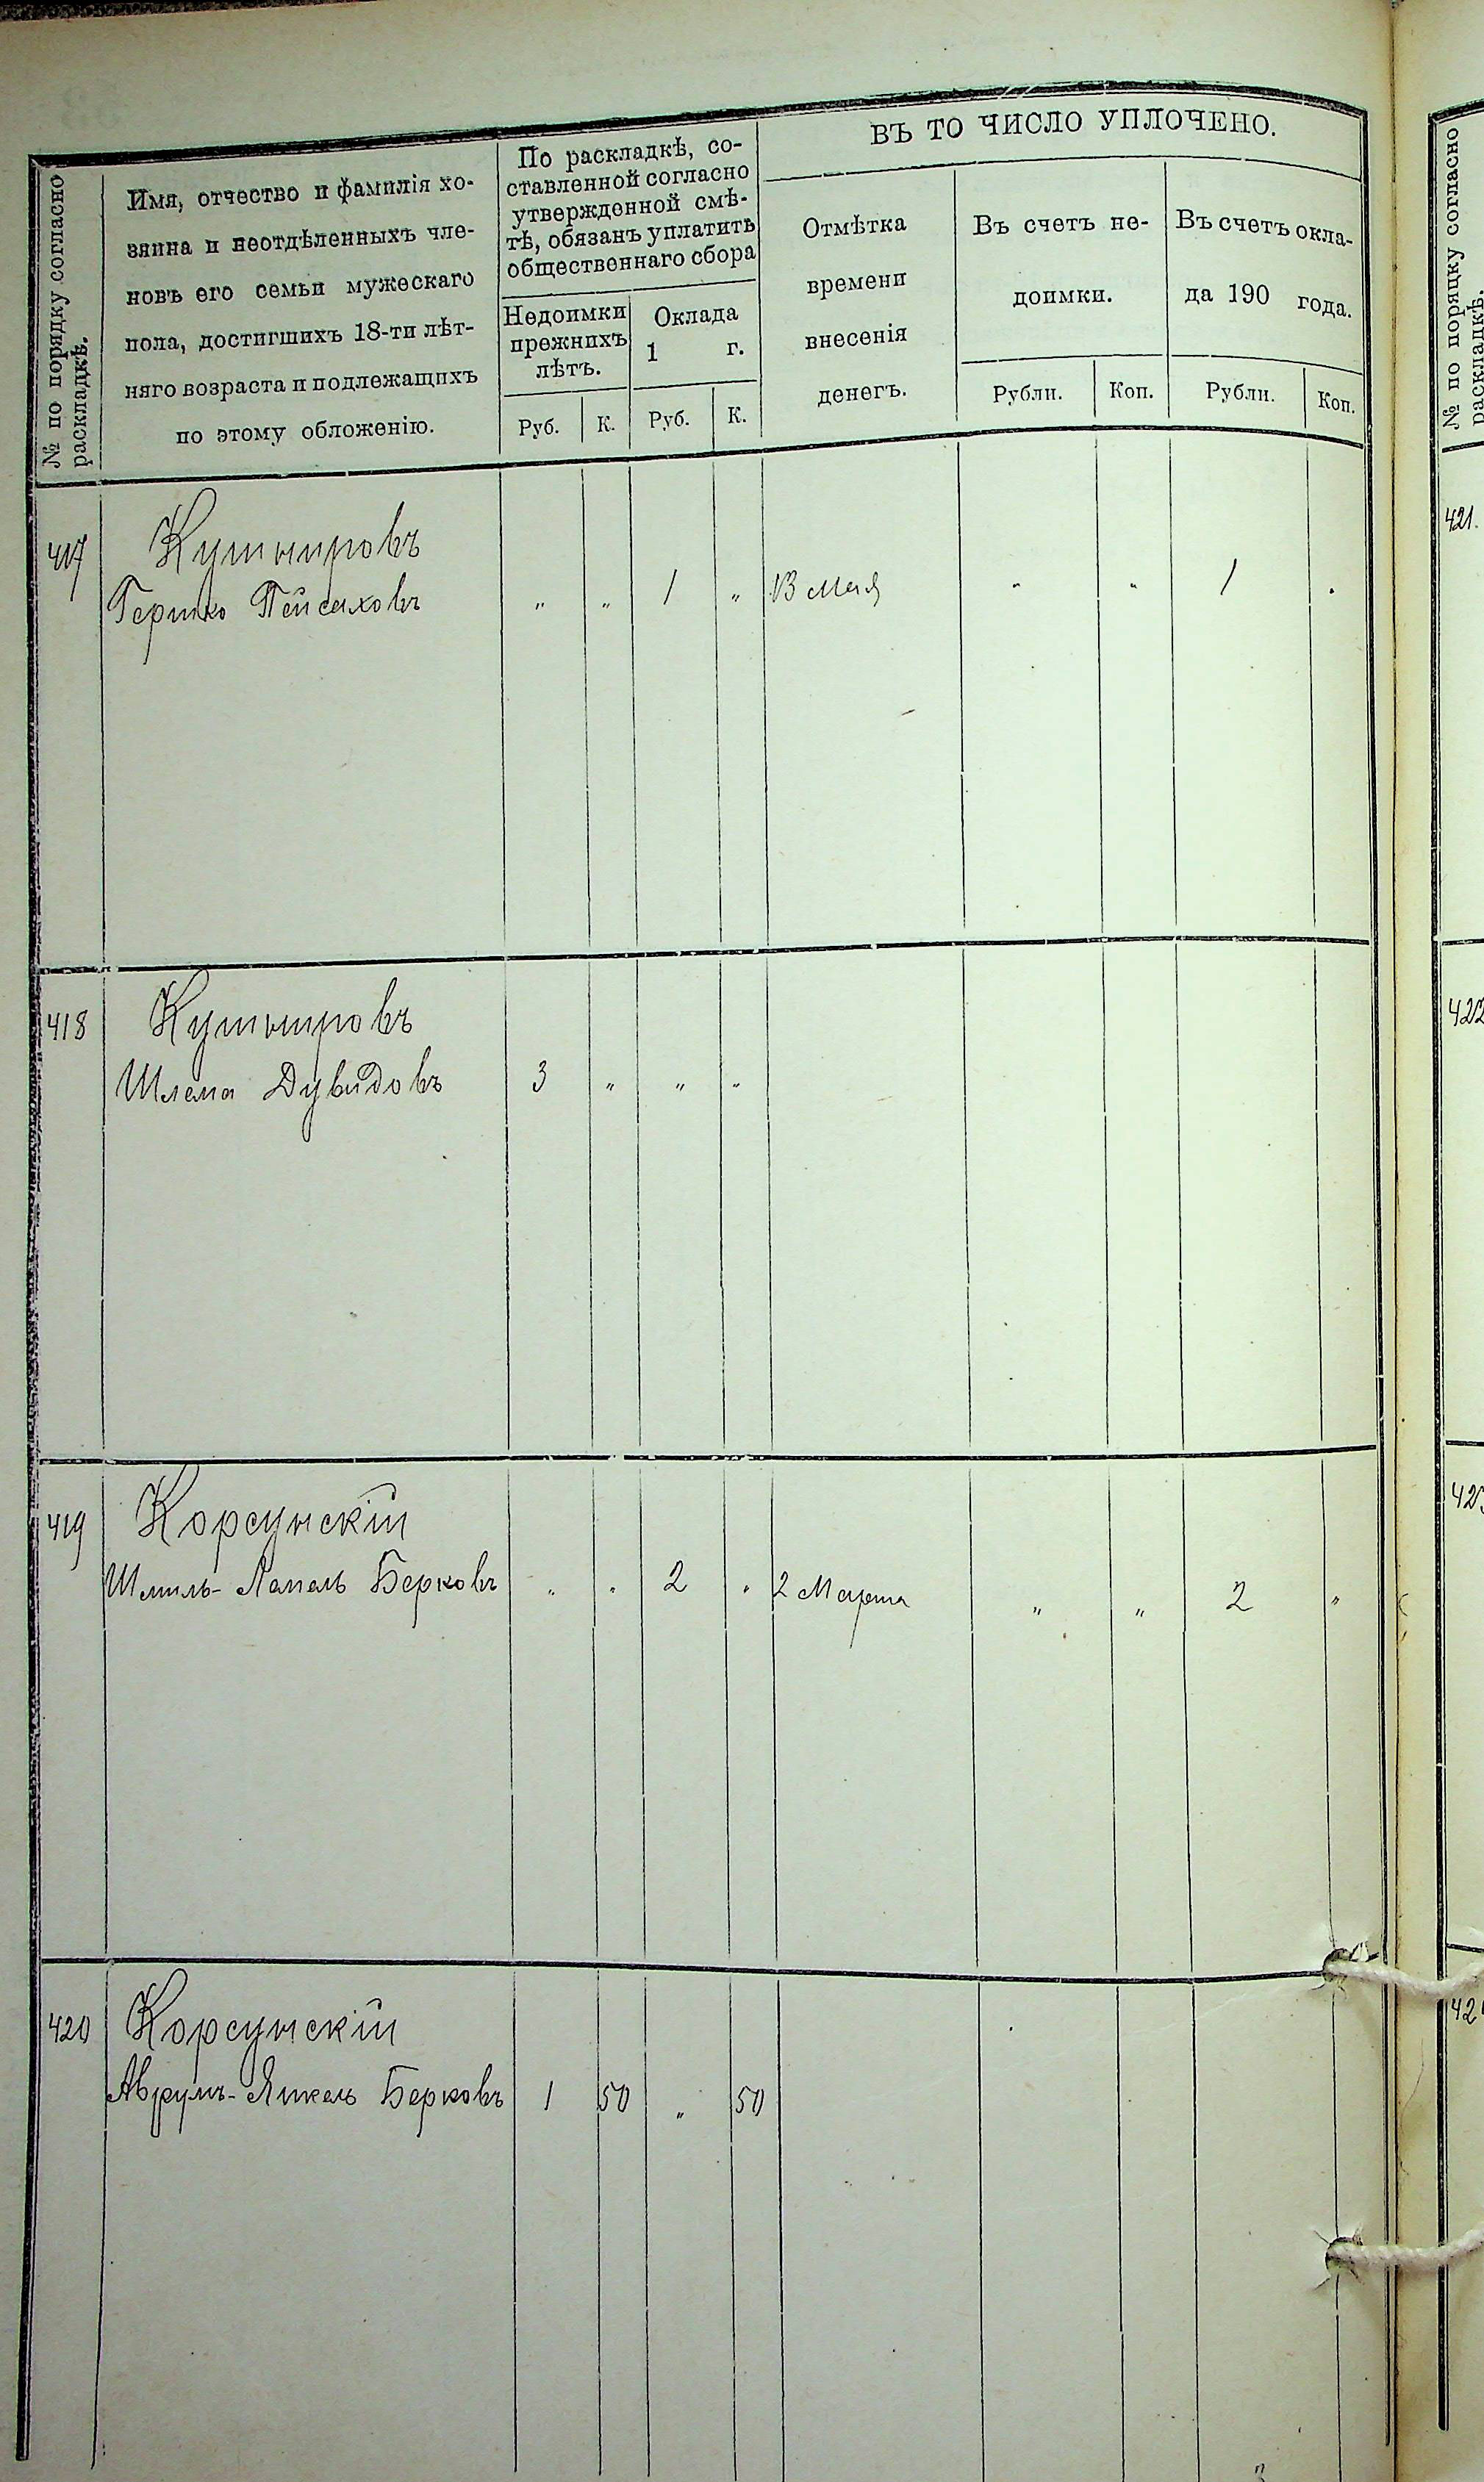 № по порядку согласно раскладкѣ.
Имя, отчество и фамилія хо-
зяина и неотдѣленныхъ чле-
новъ его семьи мужескаго
пола, достигшихъ 18-ти лѣт-
няго возраста и подлежащихъ
по этому обложенію.
По раскладкѣ, со-
ставленной согласно
утвержденной смѣ-
тѣ, обязанъ уплатить
общественнаго сбора
Недоимки
прежнихъ
лѣтъ.
Руб. К.
Оклада
1 г.
Руб. К.
ВЪ ТО ЧИСЛО УПЛОЧЕНО.
Отмѣтка
времени
внесенія
денегъ.
Въ счетъ не-
доимки.
Рубли. Коп.
Въ счетъ окла-
да 190 года.
Рубли. Коп.
417 Кушнировъ
Гершко Пейсаховъ „ „ 1 „ 13 Мая „ „ 1 „
418 Кушнировъ
Шлема Дувидовъ 3 „ „ „
419 Корсунскій
Шмиль- Берковъ „ „ 2 „ 2 Марта „ „ 2 „
420 Корсунскій
Аврумъ-Янкель Берковъ 1 50 „ 50
№ по порядку согласно
раскладкѣ.
421.
422